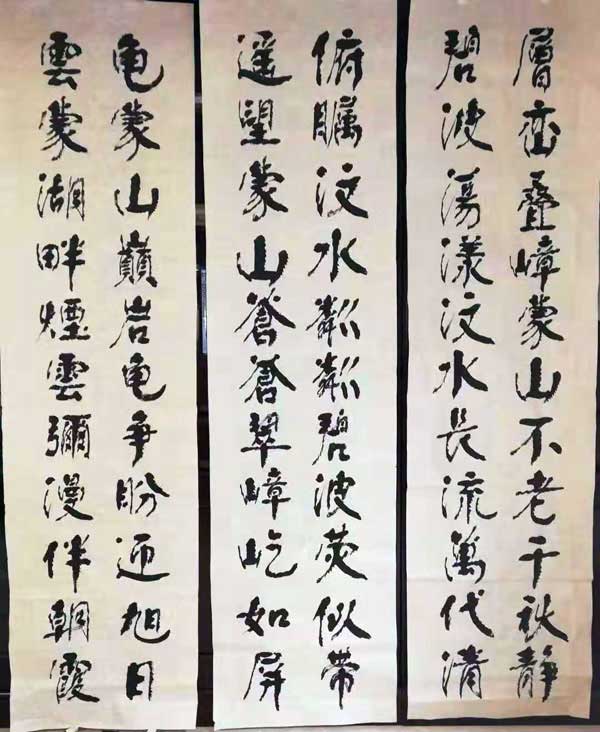 層峦叠嶂蒙山不老千秋静
碧波荡漾汶水長流萬代清
俯瞩汶水粼粼碧波荧似带
遥望蒙山蒼蒼翠嶂屹如屏
龟蒙山巔岩龟争盼迎旭日
雲蒙湖畔煙雲彌漫伴朝霞